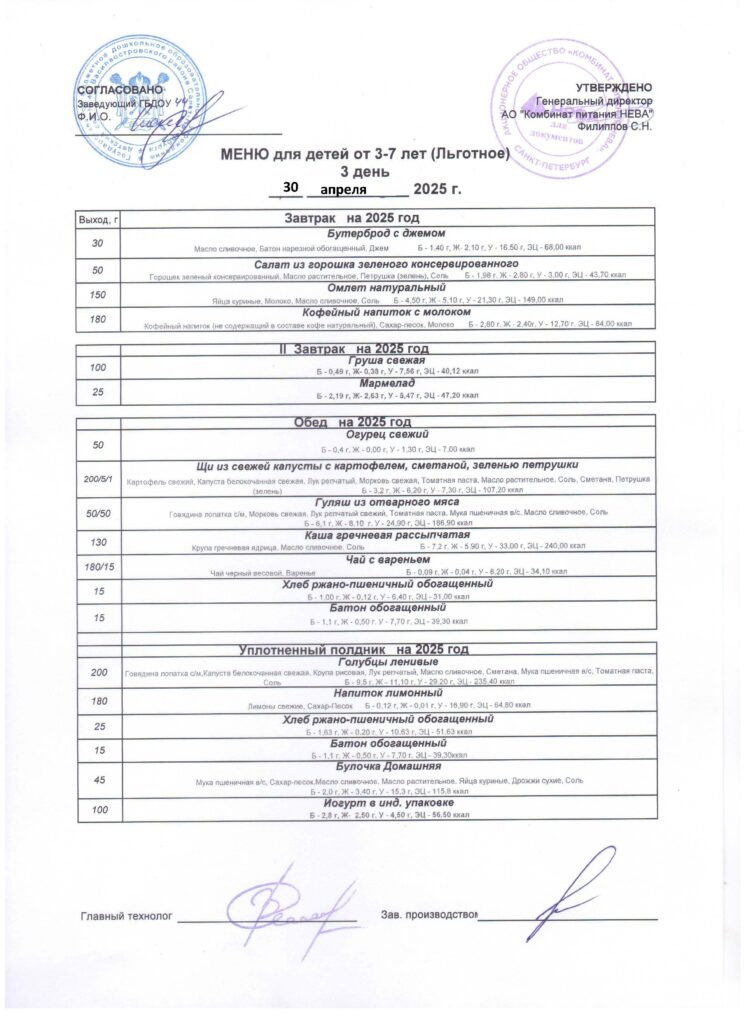 СОГЛАСОВАНО
Заведующий ГБДОУ 44
Ф.И.О.
УТВЕРЖДЕНО
Генеральный директор
АО "Комбинат питания НЕВА"
Филиппов С.Н.
для
документов
САНКТ-ПЕТЕРБУРГ
МЕНЮ для детей от 3-7 лет (Льготное)
3 день
30 апреля 2025 г.
Выход, г Завтрак на 2025 год
30 Бутерброд с джемом
Масло сливочное, Батон нарезной обогащенный, Джем Б - 1,40 г, Ж- 2,10 г, У - 16,50 г, ЭЦ - 68,00 ккал
50 Салат из горошка зеленого консервированного
Горошек зеленый консервированный, Масло растительное, Петрушка (зелень), Соль Б - 1,98 г, Ж - 2,80 г, У - 3,00 г, ЭЦ - 43,70 ккал
150 Омлет натуральный
Яйца куриные, Молоко, Масло сливочное, Соль Б - 4,50 г, Ж - 5,10 г, У - 21,30 г, ЭЦ - 149,00 ккал
180 Кофейный напиток с молоком
Кофейный напиток (не содержащий в составе кофе натуральный), Сахар-песок, Молоко Б - 2,80 г. Ж - 2,40г. У - 12,70 г. ЭЦ - 84,00 ккал
II Завтрак на 2025 год
100 Груша свежая
Б - 0,49 г, Ж- 0,38 г, У - 7,56 г, ЭЦ - 40,12 ккал
25 Мармелад
Б - 2,19 г, Ж- 2,63 г, У - 5,47 г, ЭЦ - 47,20 ккал
Обед на 2025 год
50 Огурец свежий
Б - 0,4 г, Ж - 0,00 г, У - 1,30 г, ЭЦ - 7,00 ккал
200/5/1 Щи из свежей капусты с картофелем, сметаной, зеленью петрушки
Картофель свежий, Капуста белокочанная свежая, Лук репчатый, Морковь свежая, Томатная паста, Масло растительное, Соль, Сметана, Петрушка
(зелень) Б - 3,2 г, Ж - 6,20 г, У - 7,30 г, ЭЦ - 107,20 ккал
50/50 Гуляш из отварного мяса
Говядина лопатка с/м, Морковь свежая, Лук репчатый свежий, Томатная паста, Мука пшеничная в/с, Масло сливочное, Соль
Б - 6,1 г, Ж - 8,10 г. У - 24,90 г, ЭЦ - 186,90 ккал
130 Каша гречневая рассыпчатая
Крупа гречневая ядрица, Масло сливочное, Соль Б - 7,2 г. Ж - 5,90 г, У - 33,00 г, ЭЦ - 240,00 ккал
180/15 Чай с вареньем
Чай черный весовой, Варенье Б - 0,09 г. Ж - 0,04 г. У - 8,20 г, ЭЦ - 34,10 ккал
15 Хлеб ржано-пшеничный обогащенный
Б - 1,00 г. Ж - 0,12 г, У - 6,40 г, ЭЦ - 31,00 ккал
15 Батон обогащенный
Б - 1,1 г, Ж - 0,50 г. У - 7,70 г, ЭЦ - 39,30 ккал
Уплотненный полдник на 2025 год
200 Голубцы ленивые
Говядина лопатка с/м,Капуста белокочанная свежая, Крупа рисовая, Лук репчатый, Масло сливочное, Сметана, Мука пшеничная в/с, Томатная паста,
Соль Б - 9,5 г, Ж - 11,10 г, У - 29,20 г, ЭЦ - 235,40 ккал
180 Напиток лимонный
Лимоны свежие, Сахар-Песок Б - 0,12 г, Ж - 0,01 г, У - 16,90 г, ЭЦ - 64,80 ккал
25 Хлеб ржано-пшеничный обогащенный
Б - 1,63 г, Ж - 0,20 г. У - 10,63 г, ЭЦ - 51,63 ккал
15 Батон обогащенный
Б - 1,1 г, Ж - 0,50 г, У - 7,70 г, ЭЦ - 39,30ккал
45 Булочка Домашняя
Мука пшеничная в/с, Сахар-песок,Масло сливочное, Масло растительное, Яйца куриные, Дрожжи сухие, Соль
Б - 2,0 г, Ж - 3,40 г, У - 15,3 г, ЭЦ - 115,8 ккал
100 Йогурт в инд. упаковке
Б - 2,8 г, Ж- 2,50 г, У - 4,50 г, ЭЦ - 56,50 ккал
Главный технолог Зав. производством